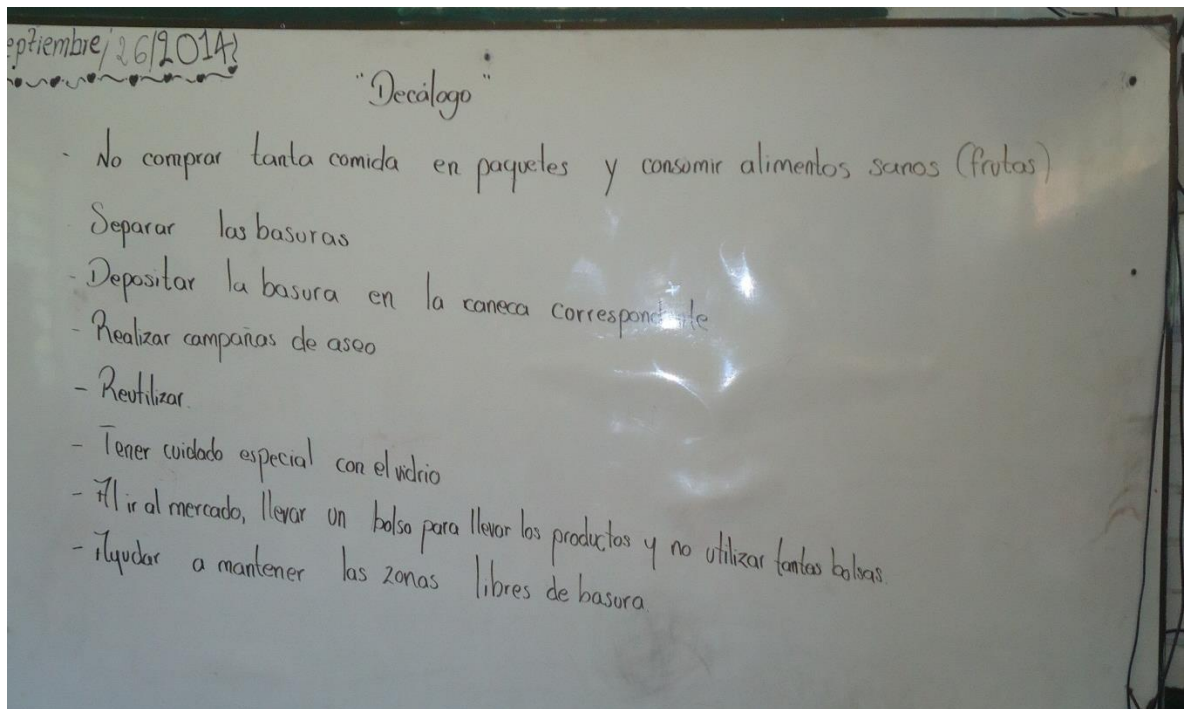 eptiembre/26/2014
"Decálogo"
- No comprar tanta comida en paquetes y consumir alimentos sanos (frutas)
Separar las basuras
- Depositar la basura en la caneca correspondiente
- Realizar campañas de aseo
- Reutilizar.
- Tener cuidado especial con el vidrio
- Al ir al mercado, llevar un bolso para llevar los productos y no utilizar tantas bolsas.
- Ayudar a mantener las zonas libres de basura